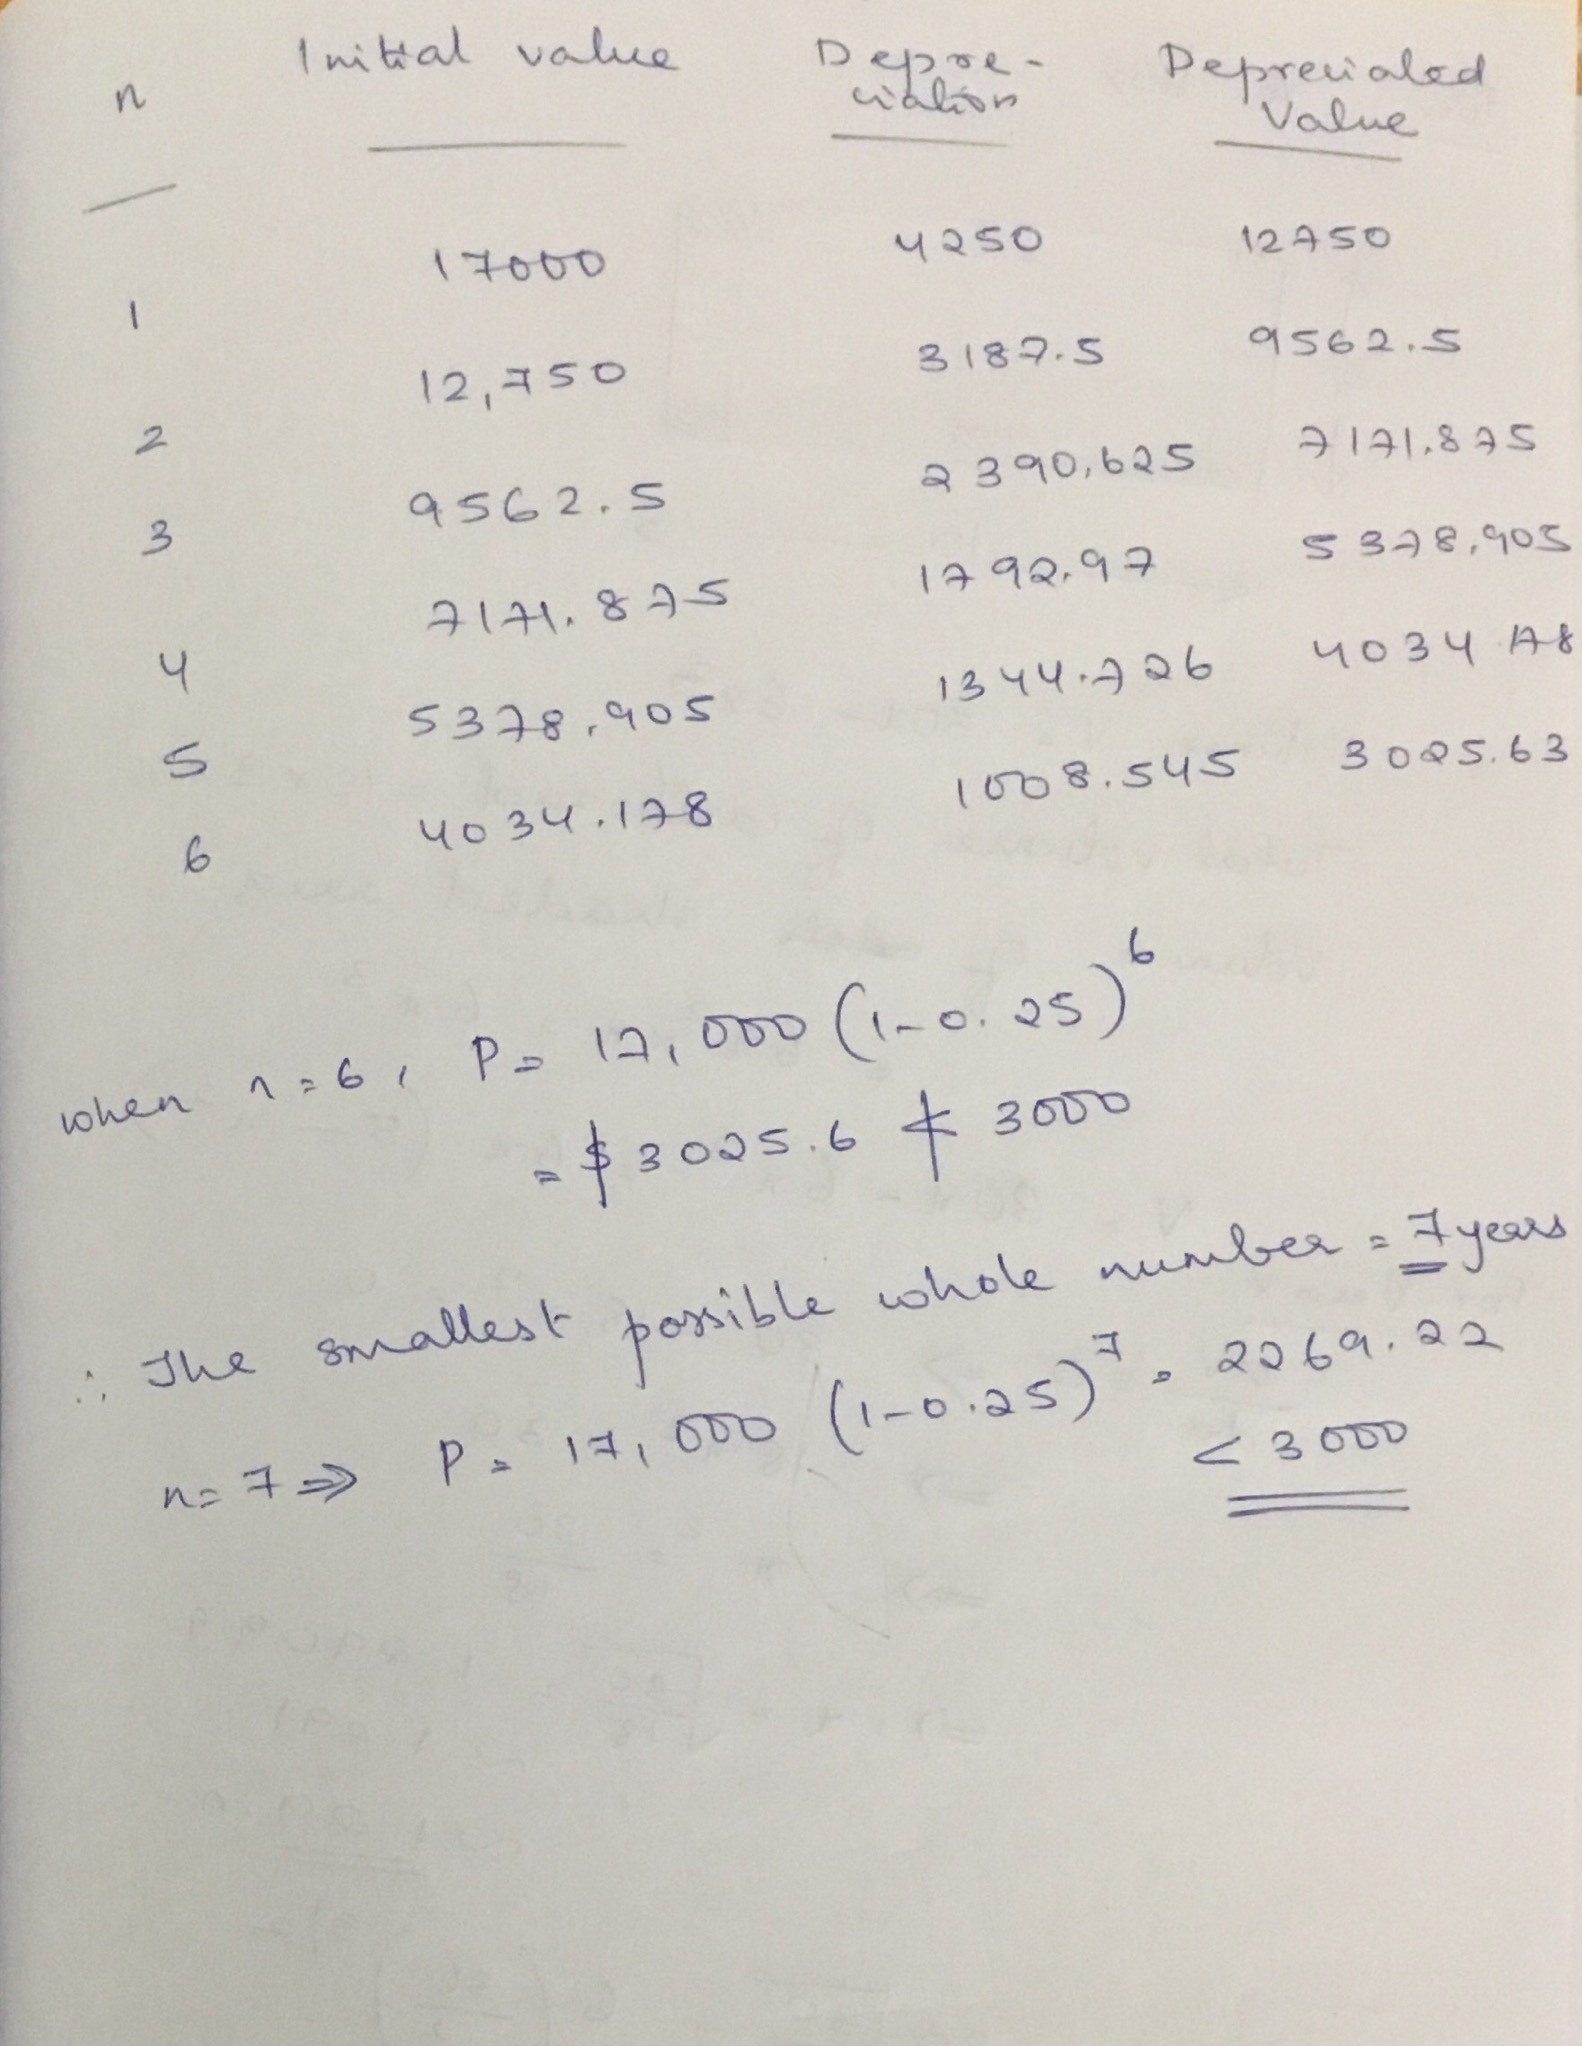 n Initial value Depre-ciation Depreciated Value
1 17000 4250 12750
2 12,750 3187.5 9562.5
3 9562.5 2390.625 7171.875
4 7171.875 1792.97 5378.905
5 5378.905 1344.726 4034.178
6 4034.178 1008.545 3025.63
when n=6, P= 17,000 (1-0.25)^6
= $3025.6 ≮ 3000
∴ The smallest possible whole number = 7 years
n=7 ⇒ P= 17,000 (1-0.25)^7 = 2269.22
< 3000